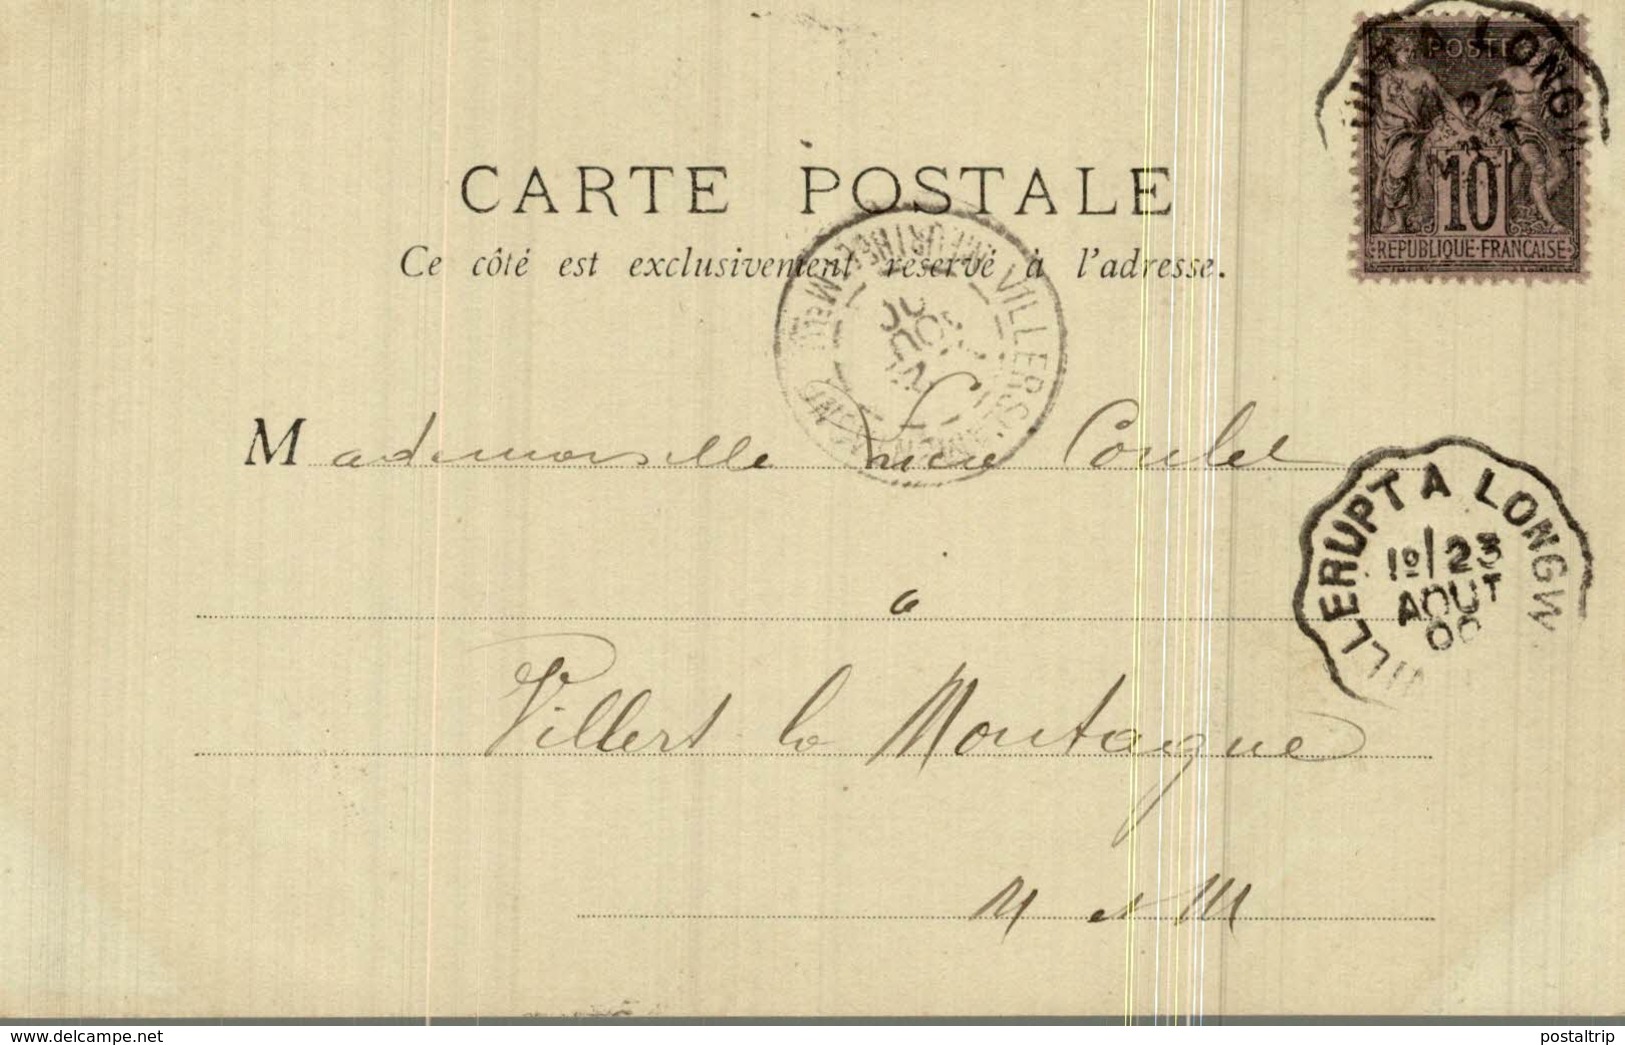 CARTE POSTALE
Ce côté est exclusivement réservé à l'adresse.
POSTE
10
REPUBLIQUE-FRANCAISE
A LONGW
VILLERS
Mademoiselle Lucie Coulet
à
Villers la Montagne
M et M
VILLERUPT A LONGW
1º 23
AOUT
00
www.delcampe.net
postaltrip